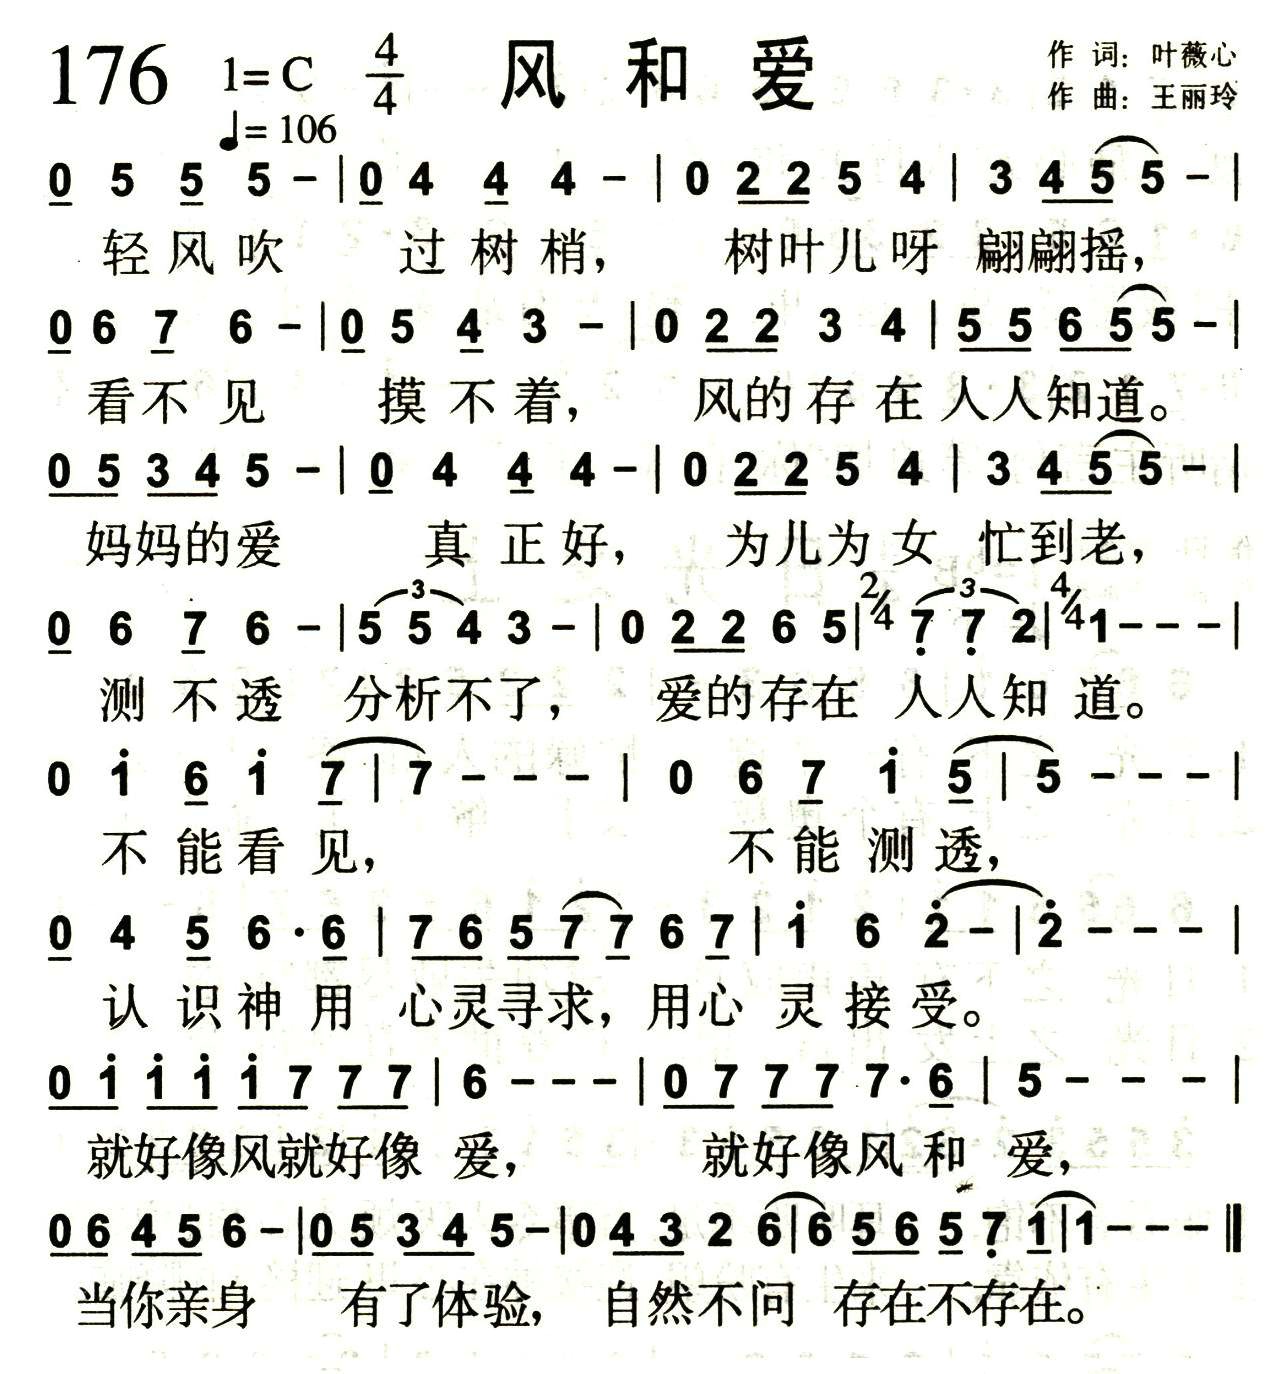 176 1=C 4/4 风和爱 作词：叶薇心
♩=106 作曲：王丽玲
0 5 5 5 – | 0 4 4 4 – | 0 2 2 5 4 | 3 4 5 5 – |
轻风吹 过树梢， 树叶儿呀 翩翩摇，
0 6 7 6 – | 0 5 4 3 – | 0 2 2 3 4 | 5 5 6 5 5 – |
看不见 摸不着， 风的存在人人知道。
0 5 3 4 5 – | 0 4 4 4 – | 0 2 2 5 4 | 3 4 5 5 – |
妈妈的爱 真正好， 为儿为女 忙到老，
0 6 7 6 – | 5 5 4 3 – | 0 2 2 6 5 | 2/4 7̣ 7̣ 2 | 4/4 1 – – – |
测不透 分析不了， 爱的存在 人人知道。
0 1̇ 6 1̇ 7 | 7 – – – | 0 6 7 1̇ 5 | 5 – – – |
不能看见， 不能测透，
0 4 5 6 · 6 | 7 6 5 7 7 6 7 | 1̇ 6 2̇ – | 2̇ – – – |
认识神用 心灵寻求，用心灵接受。
0 1̇ 1̇ 1̇ 1̇ 7 7 7 | 6 – – – | 0 7 7 7 7 · 6 | 5 – – – |
就好像风就好像 爱， 就好像风和 爱，
0 6 4 5 6 – | 0 5 3 4 5 – | 0 4 3 2 6 | 6 5 6 5 7̣ 1 | 1 – – – ‖
当你亲身 有了体验， 自然不问 存在不存在。